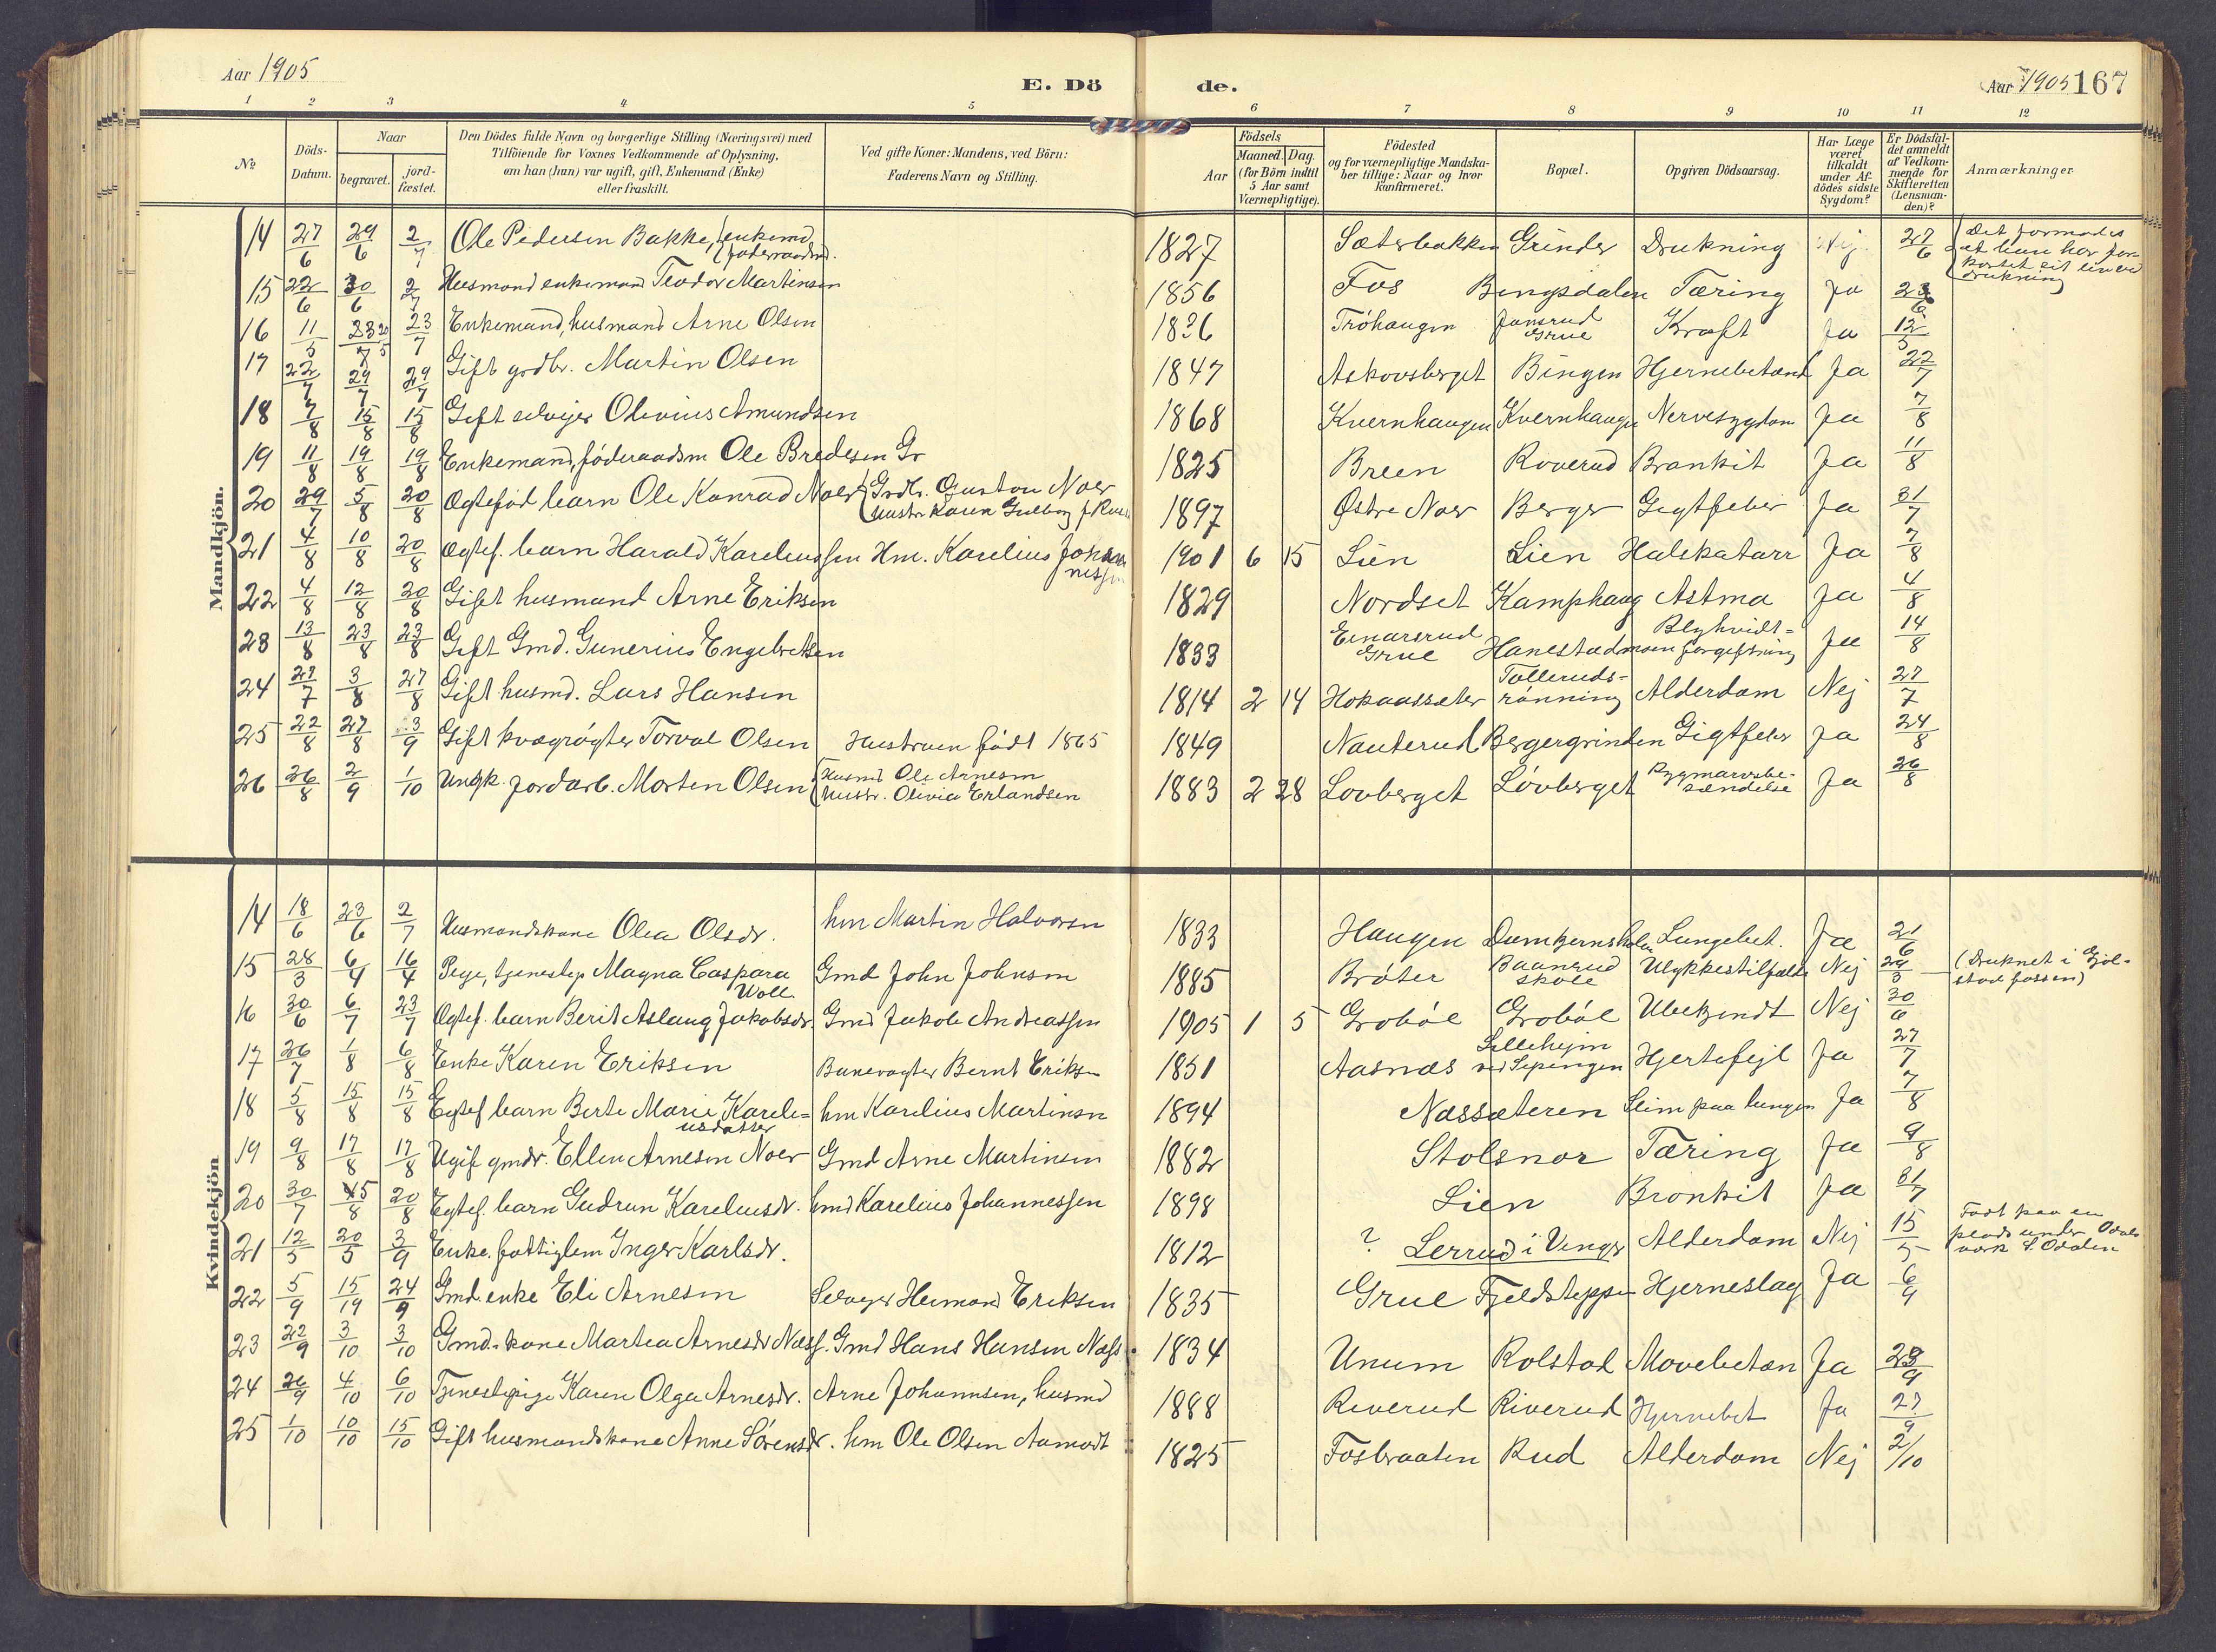 Aar 1905
E. Dö de.
Aar 1905 167
1 2 3 4 5 6 7 8 9 10 11 12
№
Döds-Datum.
Naar
begravet.
jord-fæstet.
Den Dödes fulde Navn og borgerlige Stilling (Næringsvei) med
Tilföiende for Voxnes Vedkommende af Oplysning,
om han (hun) var ugift, gift, Enkemand (Enke)
eller fraskilt.
Ved gifte Koner: Mandens, ved Börn:
Faderens Navn og Stilling.
Födsels
Aar
Maaned. Dag.
(for Börn indtil
5 Aar samt
Værnepligtige).
Födested
og for værnepligtige Mandska-
ber tillige: Naar og hvor
konfirmeret.
Bopæl.
Opgiven Dödsaarsag.
Har Læge
været
tilkaldt
under Af-
dödes sidste
Sygdom?
Er Dödsfal-
det anmeldt
af Vedkom-
mende for
Skifteretten
(Lensman-
den)?
Anmærkninger.
Mandkjön.
14 27/6 29/6 2/7 Ole Pedersen Bakke, enkemd 1827 Sæterbakken Grinder Drukning Nej 27/6 Det formodes at han har for-kortet sit liv ved drukning
15 22/6 30/6 2/7 Husmand enkemand Teodor Martinsen 1856 Fos Bingsdalen Tæring Ja 23/6
16 11/5 23/7 20/5 23/7 Enkemand, husmand Arne Olsen 1836 Tröhaugen Jansrud Grue Kræft Ja 12/5
17 22/7 29/7 29/7 Gift grdbr. Martin Olsen 1847 Askovsberget Bingen Hjernebetænd Ja 22/7
18 7/8 15/8 15/8 Gift selveier Olivius Amundsen 1868 Kvernhaugen Kvernhaugen Nervesygdom Ja 7/8
19 11/8 19/8 19/8 Enkemand, föderaadsm Ole Bredesen Gr 1825 Breen Roverud Bronkit Ja 11/8
20 29/7 5/8 20/8 Ægtefød barn Ole Konrad Noer Grdb. Gustav Noer Hustr Karen Gulborg f. 1897 Østre Noer Berger Gigtfeber Ja 31/7
21 4/8 10/8 20/8 Ægtef. barn Harald Kareliussen Hm. Karelius Johannessen 1901 6 15 Lien Lien Halskatarr Ja 7/8
22 4/8 12/8 20/8 Gift husmand Arne Eriksen 1829 Nordset Kamphaug Astma Ja 4/8
23 13/8 23/8 23/8 Gift Gmd. Gunerius Engebretsen 1833 Einarsrud Grue Hanestadmoen Blyhvidt-forgiftning Ja 14/8
24 27/7 3/8 27/8 Gift husmd. Lars Hansen 1814 2 14 Hokaassæter Tolleruds-rönning Alderdom Nej 27/7
25 22/8 27/8 3/9 Gift kvægrögter Torval Olsen Hustruen födt 1865 1849 Nauterud Bergergrinden Gigtfeber Ja 24/8
26 26/8 2/9 1/10 Ungk. jordarb. Morten Olsen Husmd Ole Arnesen Hustr. Olivia Erlandsen 1883 2 28 Lovberget Lövberget Rygmarvsbe-tændelse Ja 26/8
Kvindekjön
14 18/6 23/6 2/7 Husmandskone Olea Olsdr. hm Martin Halvorsen 1833 Haugen Damtjernsholen Lungebet. Ja 21/6
15 28/3 6/4 16/4 Pige, tjenestep Magna Caspara Woll Gmd John Johnsen 1885 Bröter Baanrud skole Ulykkestilfælde Nej 29/3 (Druknet i Gjöl-stadfossen)
16 30/6 6/7 23/7 Ægtef. barn Berit Aslaug Jakobsdr. Gmd Jakob Andreassen 1905 1 5 Groböl Groböl Ubekjendt Nej 30/6
17 26/7 1/8 6/8 Enke Karen Eriksen Banevogter Bernt Eriksen 1851 Aasnæs Lillehejm ved Hjertefejl Ja 27/7
18 5/8 15/8 15/8 Egtef barn Berte Marie Kareli-usdatter hm Karelius Martinsen 1894 Næssæteren Slim paa lungen Ja 7/8
19 9/8 17/8 17/8 Ugif gmdr. Ellen Arnesen Noer Gmd Arne Martinsen 1882 Stolsnor Tæring Ja 9/8
20 30/7 5/8 20/8 Egtef. barn Gudrun Kareliusdr. hmd Karelius Johannessen 1898 Lien Bronkit Ja 31/7
21 12/5 20/5 3/9 Enke. fattiglem Inger Karlsdr. 1812 ? Lerrud i Vinger Alderdom Nej 15/5 Födt paa en plads under Odals verk S. Odalen
22 5/9 15/19 24/9 Gmd. enke Eli Arnesen Selveger Hermand Eriksen 1835 Grue Fjeldsteppen Hjerneslag Ja 6/9
23 22/9 3/10 3/10 Gmd.-kone Martea Arnesdr Næss. Gmd Hans Hansen Næss 1834 Unum Rolstad Mavebetæn Ja 23/9
24 26/9 4/10 6/10 Tjenestepige Karen Olga Arnesdr. Arne Johannsen, husmd 1888 Riverud Riverud Hjernebet Ja 27/9
25 1/10 10/10 15/10 Gift husmandskone Anne Sörensdr. hm Ole Olsen Aamodt 1825 Fosbraaten Rud Alderdom Nej 2/10